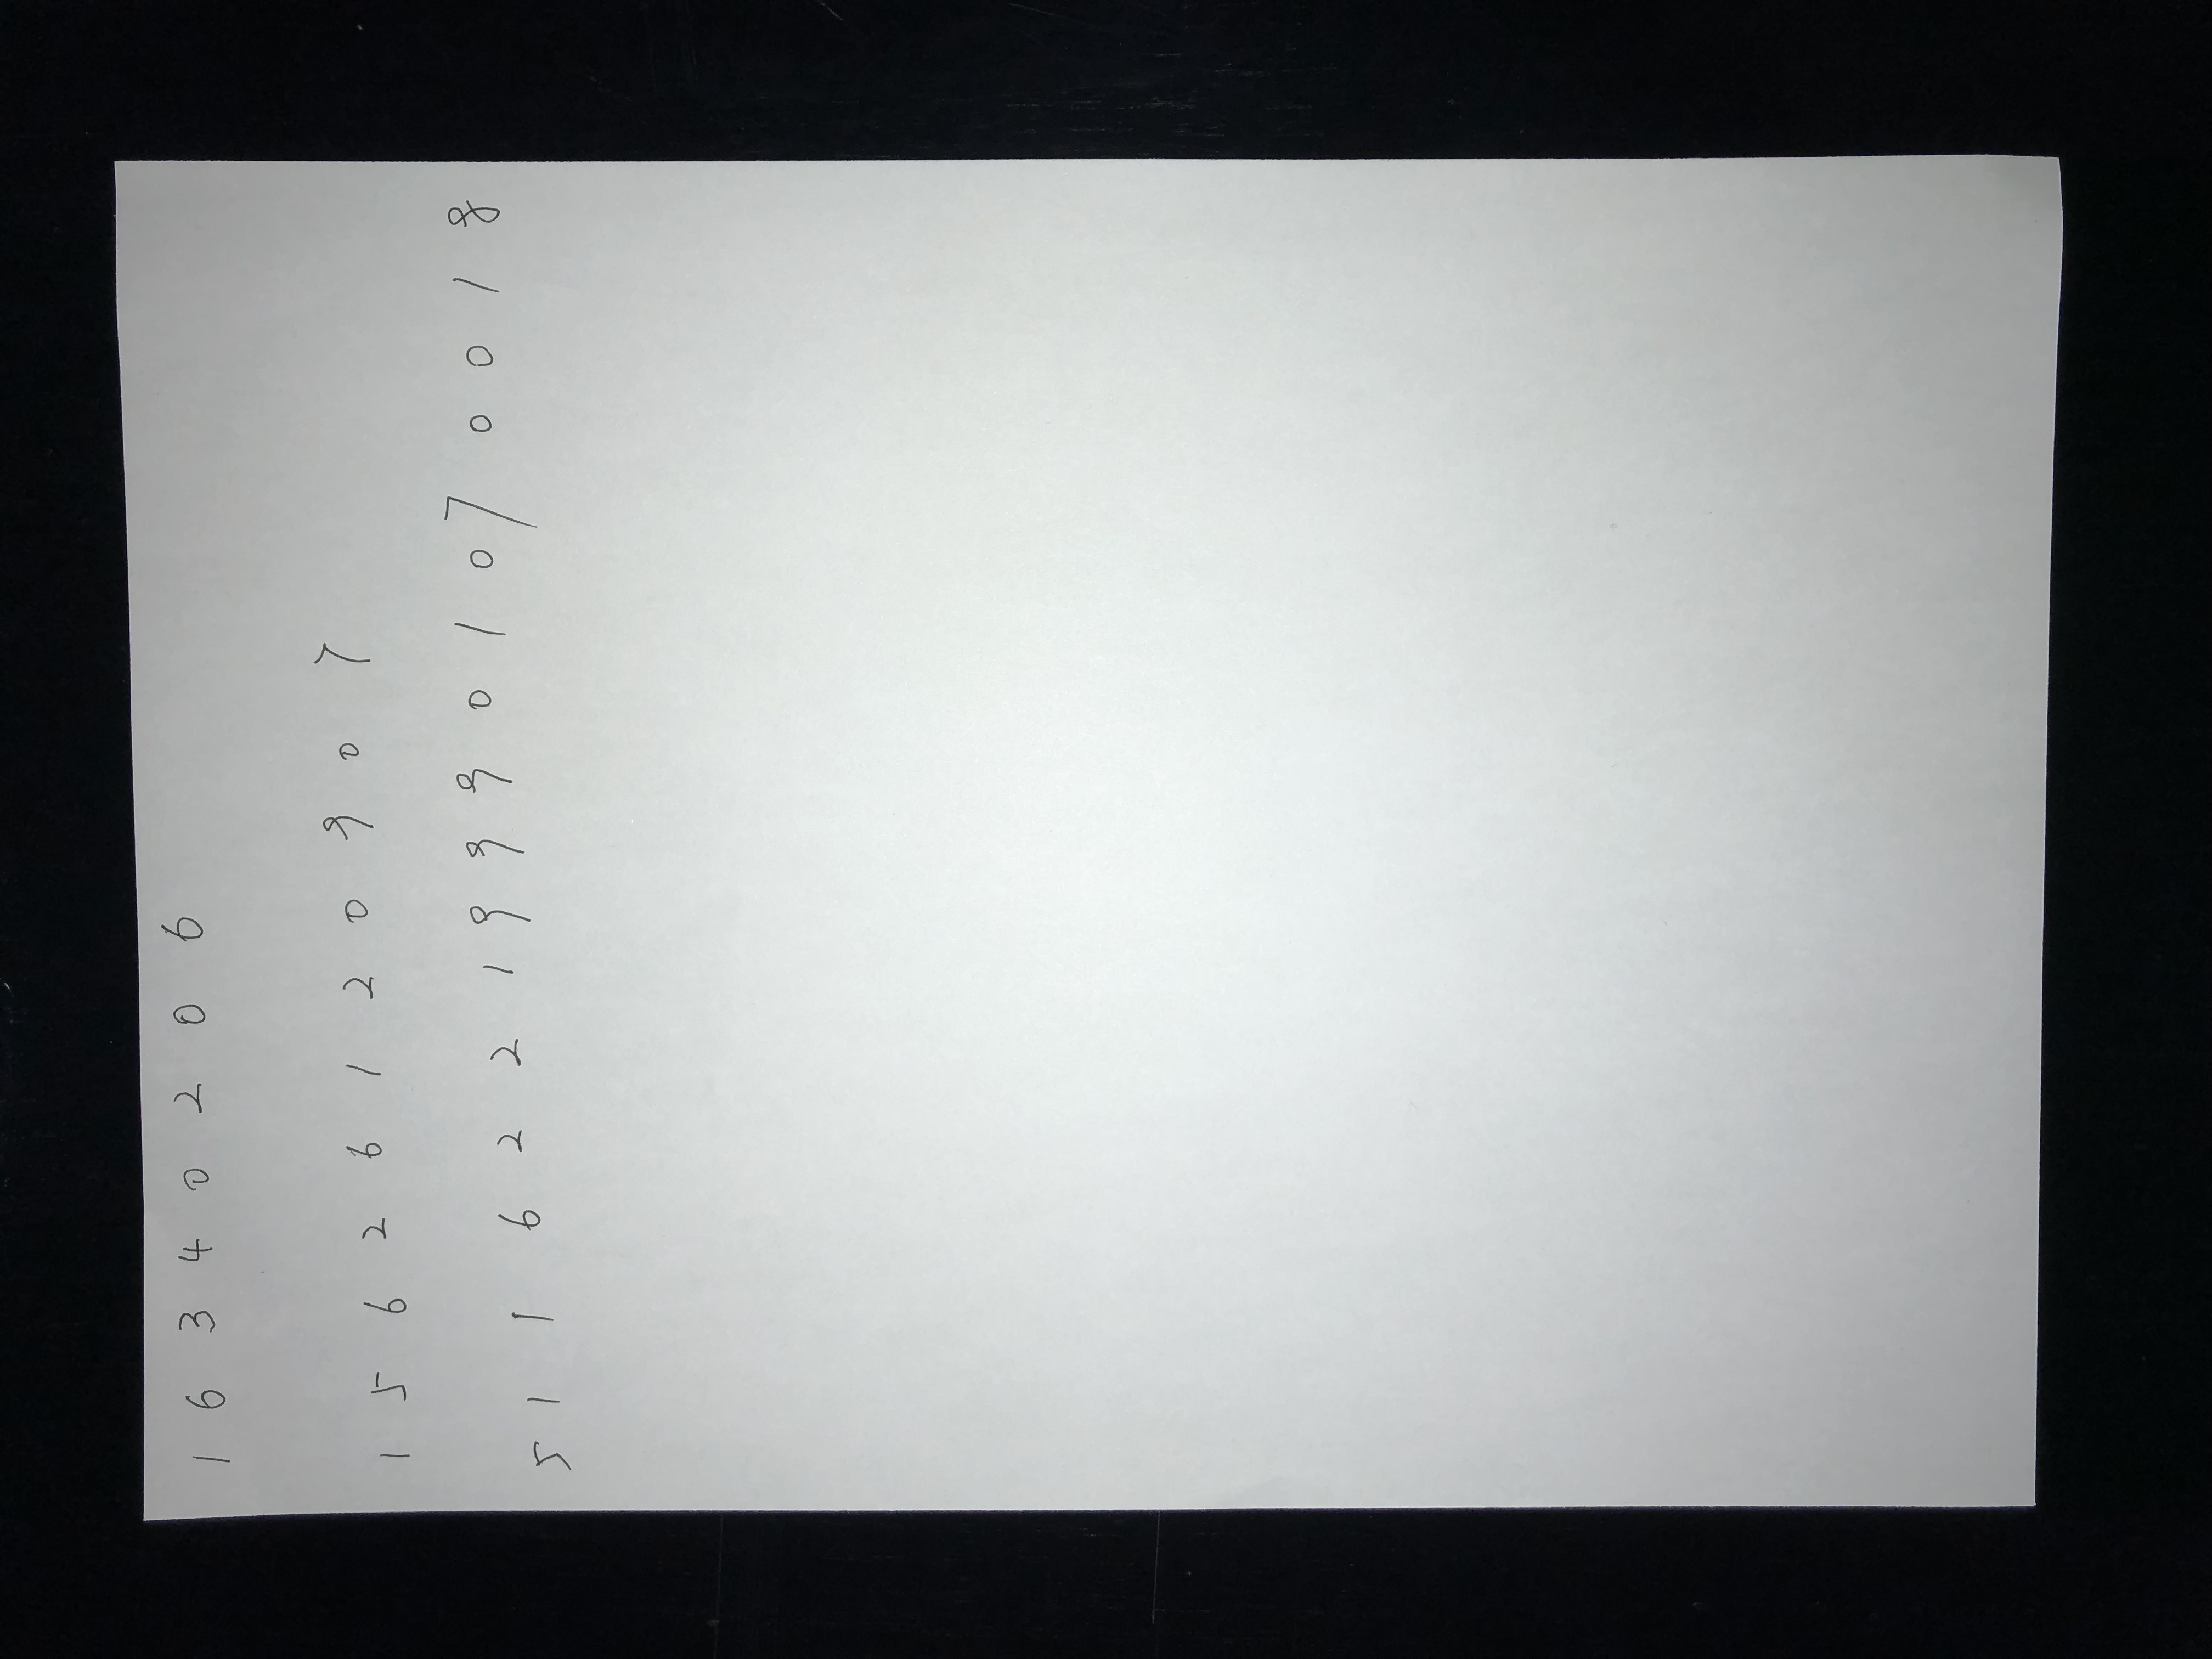 1 6 3 4 0 2 0 6
1 5 6 2 6 1 2 0 9 0 7
5 1 1 6 2 2 1 9 9 9 0 1 0 7 0 0 1 8